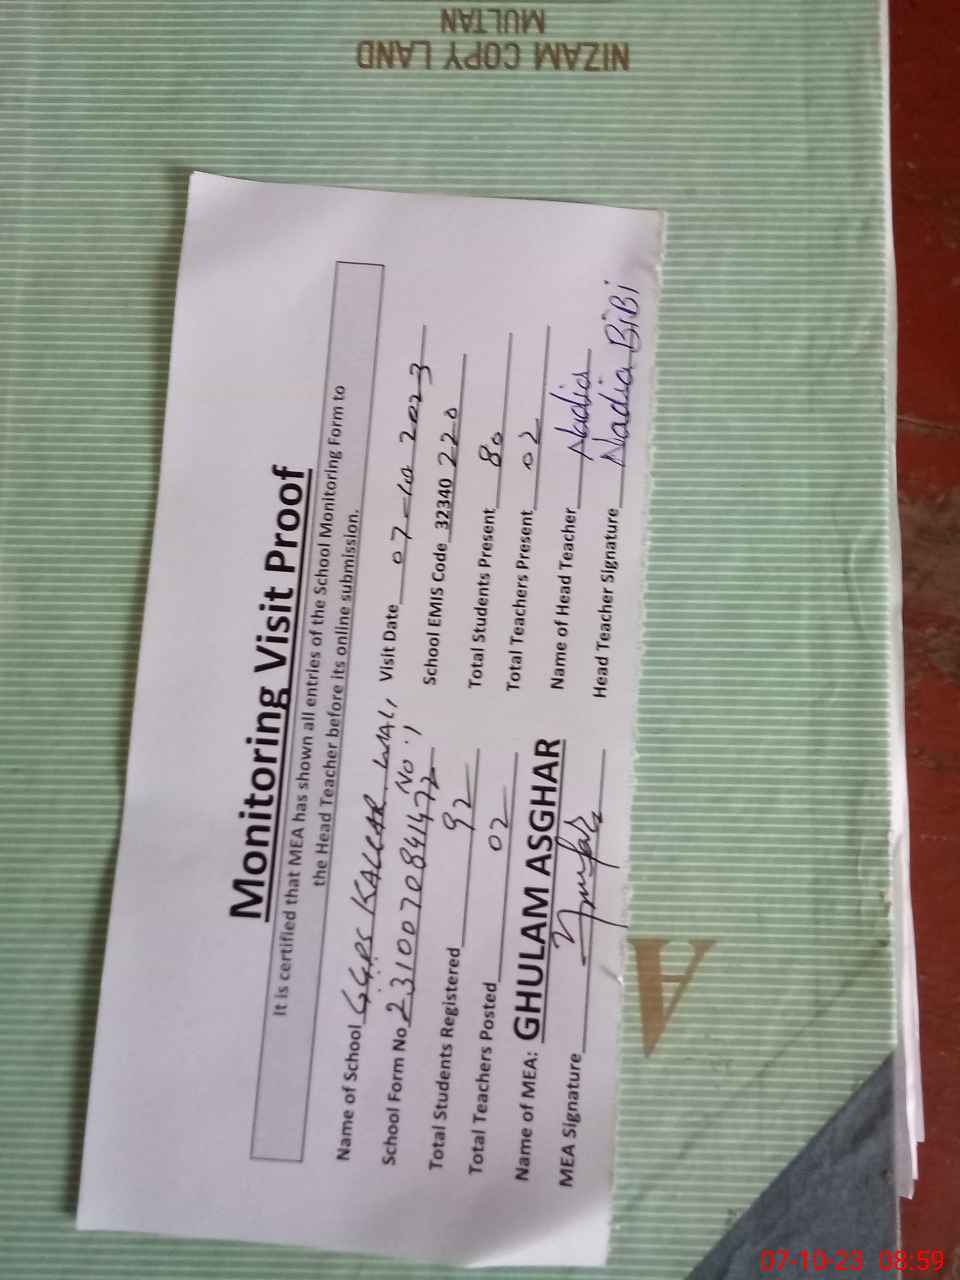 NIZAM COPY LAND
MULTAN
Monitoring Visit Proof
It is certified that MEA has shown all entries of the School Monitoring Form to
the Head Teacher before its online submission.
Name of School GGPS KALLAR WALI No.1 Visit Date 07-10 2023
School Form No 2310070841472 School EMIS Code 32340 220
Total Students Registered 92 Total Students Present 80
Total Teachers Posted 02 Total Teachers Present 02
Name of MEA: GHULAM ASGHAR Name of Head Teacher Nadia
MEA Signature Head Teacher Signature Nadia BiBi
A
07-10-23 08:59